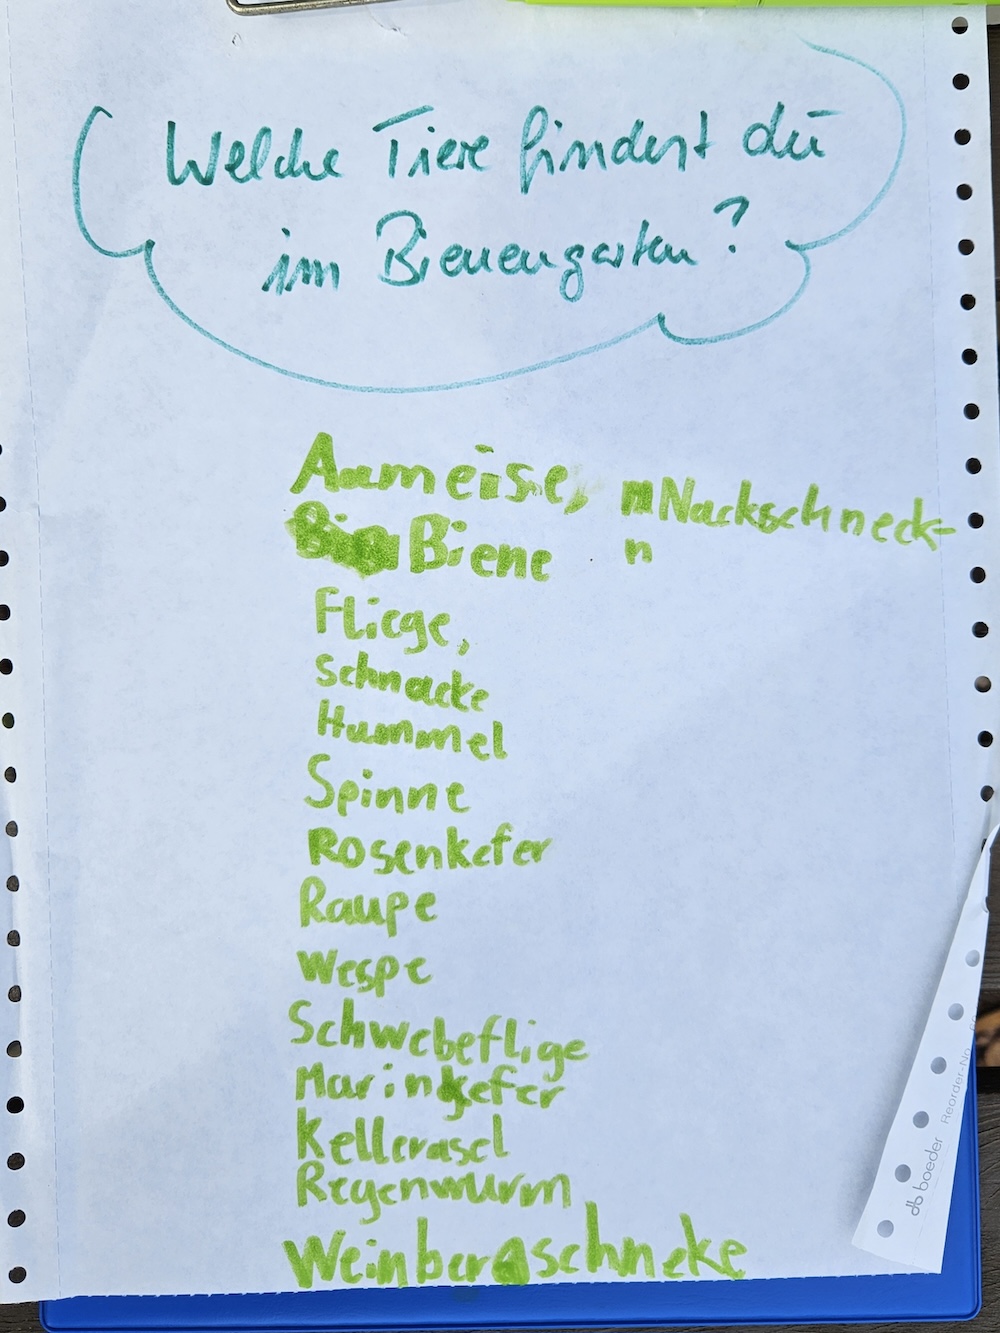 Welche Tiere findest du
im Bienengarten?
Ameise, Nackschneck-
Biene n
Fliege,
schnacke
Hummel
Spinne
Rosenkefer
Raupe
Wespe
Schwebeflige
Marinkefer
Kellerasel
Regenwurm
Weinbergschneke
boeder Reorder-No.